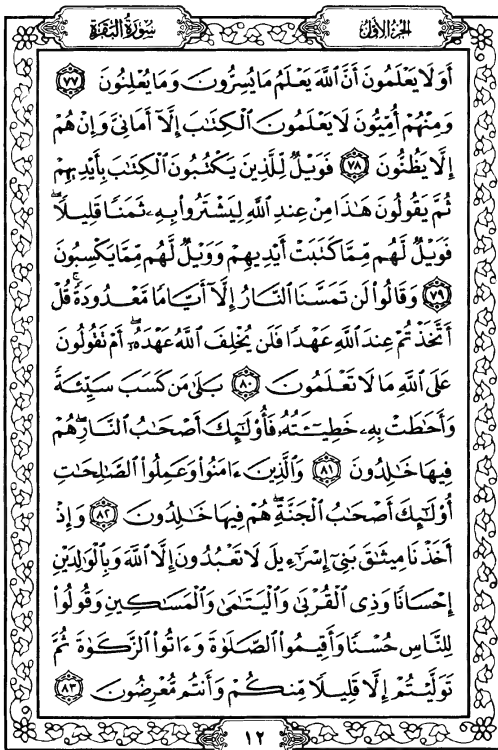 سُورَةُ البَقَرَةِ
الجُزءُ الأَوَّل
أَوَلَا يَعۡلَمُونَ أَنَّ ٱللَّهَ يَعۡلَمُ مَا يُسِرُّونَ وَمَا يُعۡلِنُونَ ٧٧
وَمِنۡهُمۡ أُمِّيُّونَ لَا يَعۡلَمُونَ ٱلۡكِتَٰبَ إِلَّآ أَمَانِيَّ وَإِنۡ هُمۡ
إِلَّا يَظُنُّونَ ٧٨ فَوَيۡلٞ لِّلَّذِينَ يَكۡتُبُونَ ٱلۡكِتَٰبَ بِأَيۡدِيهِمۡ
ثُمَّ يَقُولُونَ هَٰذَا مِنۡ عِندِ ٱللَّهِ لِيَشۡتَرُواْ بِهِۦ ثَمَنٗا قَلِيلٗاۖ
فَوَيۡلٞ لَّهُم مِّمَّا كَتَبَتۡ أَيۡدِيهِمۡ وَوَيۡلٞ لَّهُم مِّمَّا يَكۡسِبُونَ
٧٩ وَقَالُواْ لَن تَمَسَّنَا ٱلنَّارُ إِلَّآ أَيَّامٗا مَّعۡدُودَةٗۚ قُلۡ
أَتَّخَذۡتُمۡ عِندَ ٱللَّهِ عَهۡدٗا فَلَن يُخۡلِفَ ٱللَّهُ عَهۡدَهُۥٓۖ أَمۡ تَقُولُونَ
عَلَى ٱللَّهِ مَا لَا تَعۡلَمُونَ ٨٠ بَلَىٰ مَن كَسَبَ سَيِّئَةٗ
وَأَحَٰطَتۡ بِهِۦ خَطِيٓـَٔتُهُۥ فَأُوْلَٰٓئِكَ أَصۡحَٰبُ ٱلنَّارِۖ هُمۡ
فِيهَا خَٰلِدُونَ ٨١ وَٱلَّذِينَ ءَامَنُواْ وَعَمِلُواْ ٱلصَّٰلِحَٰتِ
أُوْلَٰٓئِكَ أَصۡحَٰبُ ٱلۡجَنَّةِۖ هُمۡ فِيهَا خَٰلِدُونَ ٨٢ وَإِذۡ
أَخَذۡنَا مِيثَٰقَ بَنِيٓ إِسۡرَٰٓءِيلَ لَا تَعۡبُدُونَ إِلَّا ٱللَّهَ وَبِٱلۡوَٰلِدَيۡنِ
إِحۡسَانٗا وَذِي ٱلۡقُرۡبَىٰ وَٱلۡيَتَٰمَىٰ وَٱلۡمَسَٰكِينِ وَقُولُواْ
لِلنَّاسِ حُسۡنٗا وَأَقِيمُواْ ٱلصَّلَوٰةَ وَءَاتُواْ ٱلزَّكَوٰةَ ثُمَّ
تَوَلَّيۡتُمۡ إِلَّا قَلِيلٗا مِّنكُمۡ وَأَنتُم مُّعۡرِضُونَ ٨٣
١٢